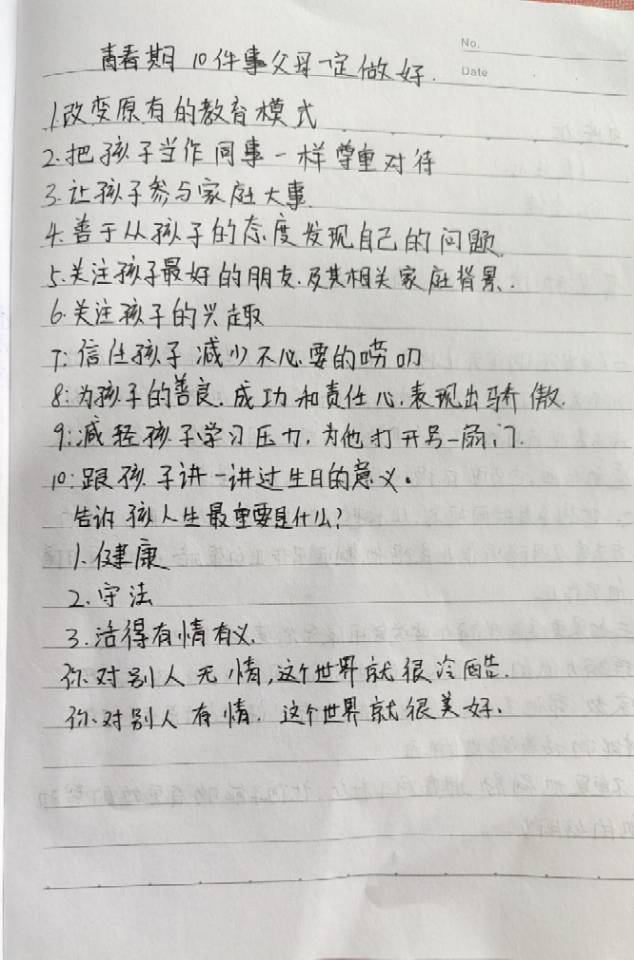 No.
Date
青春期10件事父母一定做好.
1.改变原有的教育模式
2.把孩子当作同事一样尊重对待
3.让孩子参与家庭大事.
4.善于从孩子的态度发现自己的问题
5.关注孩子最好的朋友.及其相关家庭背景.
6.关注孩子的兴趣
7:信任孩子减少不必要的唠叨
8:为孩子的善良.成功和责任心.表现出骄傲.
9:减轻孩子学习压力,为他打开另一扇门.
10:跟孩子讲一讲过生日的意义。
告诉孩人生最重要是什么?
1.健康
2.守法
3.活得有情有义.
你对别人无情,这个世界就很冷酷.
你对别人有情.这个世界就很美好.